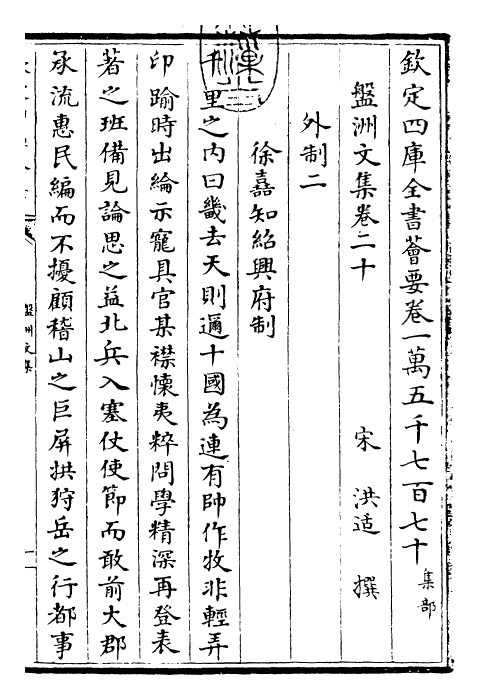 欽定四庫全書薈要卷一萬五千七百七十 集部
盤洲文集卷二十 宋 洪适 撰
外制二
徐嘉知紹興府制
千里之内曰畿去天則邇十國為連有帥作牧非輕弄
印踰時出綸示寵具官某襟懷夷粹問學精深再登表
著之班備見論思之益北兵入塞仗使節而敢前大郡
承流惠民編而不擾顧稽山之巨屏拱狩岳之行都事
盤洲文集